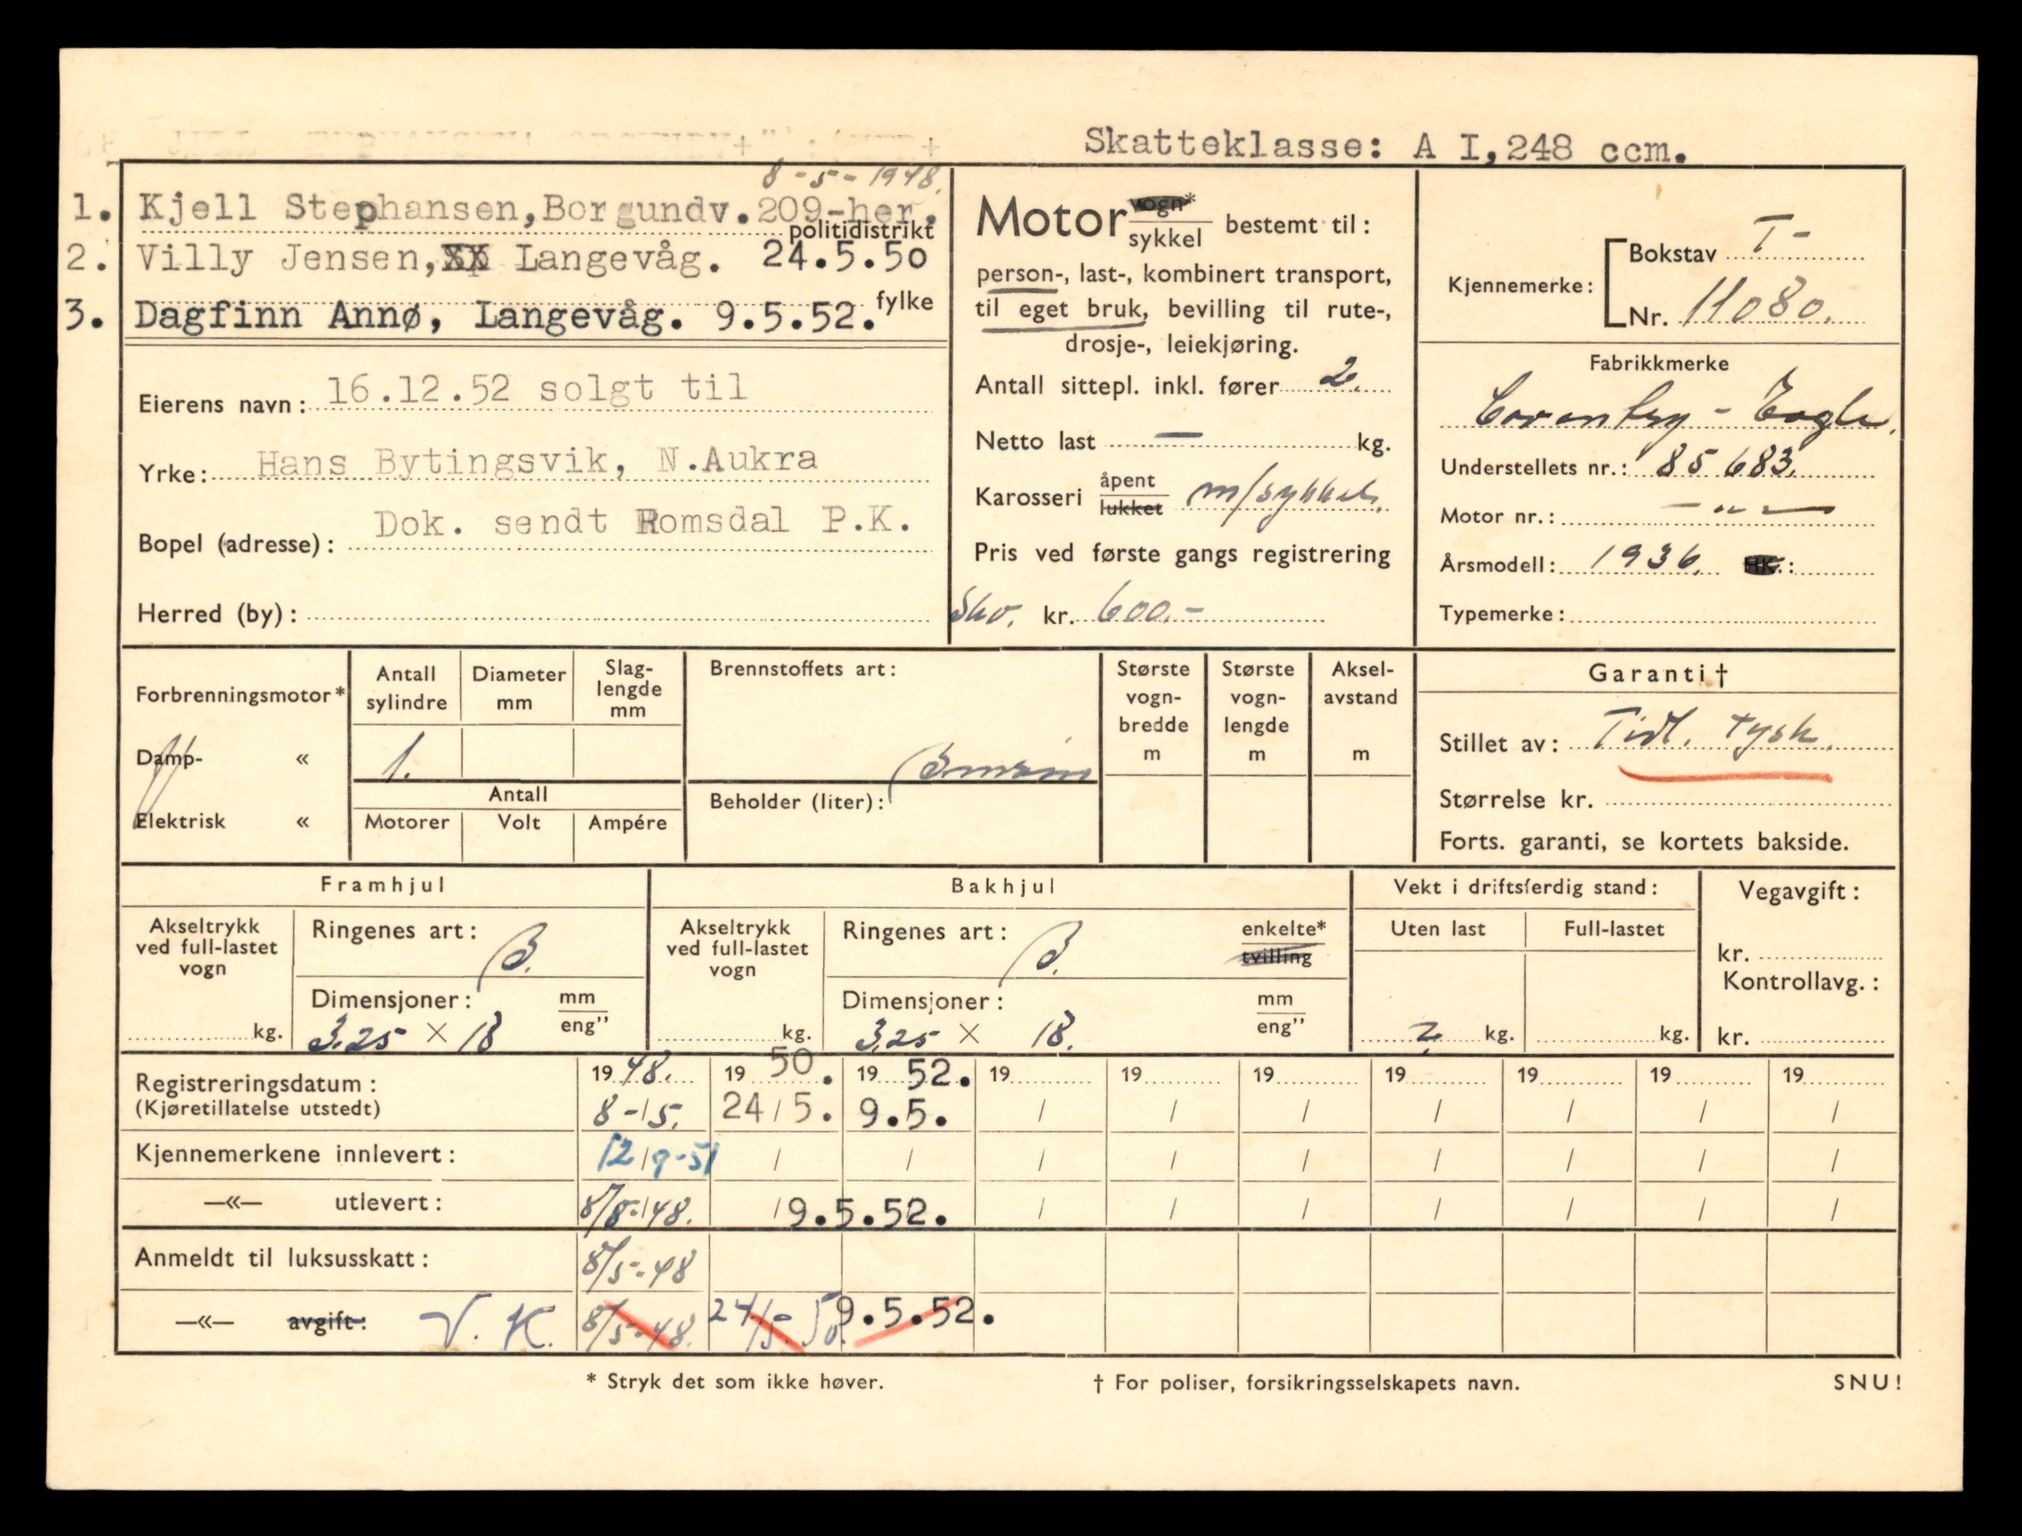 Skatteklasse: A I, 248 ccm.
8-5-1948.
1. Kjell Stephansen, Borgundv. 209-her.
politidistrikt
2. Villy Jensen, XX Langevåg. 24.5.50
fylke
3. Dagfinn Annø, Langevåg. 9.5.52.
Eierens navn: 16.12.52 solgt til
Yrke: Hans Bytingsvik, N.Aukra
Bopel (adresse): Dok. sendt Romsdal P.K.
Herred (by):
Motor vogn* sykkel bestemt til:
person-, last-, kombinert transport,
til eget bruk, bevilling til rute-,
drosje-, leiekjøring.
Antall sittepl. inkl. fører 2.
Netto last — kg.
Karosseri åpent lukket m/sykkel.
Pris ved første gangs registrering
Skv. kr. 600.-
Kjennemerke: Bokstav T-
Nr. 11080.
Fabrikkmerke
Coventry - Eagle.
Understellets nr.: 85683.
Motor nr.: — " —
Årsmodell: 1936. HK.:
Typemerke:
Forbrenningsmotor*
Damp- «
Elektrisk «
Antall sylindre
Diameter mm
Slag-lengde mm
1.
Antall
Motorer Volt Ampére
Brennstoffets art:
Bensin
Beholder (liter):
Største vogn-bredde m
Største vogn-lengde m
Aksel-avstand m
Garanti †
Stillet av: Tidl. tysk.
Størrelse kr.
Forts. garanti, se kortets bakside.
Framhjul
Akseltrykk ved full-lastet vogn
kg.
Ringenes art: B.
Dimensjoner: mm eng"
3.25 × 18
Bakhjul
Akseltrykk ved full-lastet vogn
kg.
Ringenes art: B. enkelte* tvilling
Dimensjoner: mm eng"
3.25 × 18.
Vekt i driftsferdig stand:
Uten last Full-lastet
? kg. kg.
Vegavgift:
kr.
Kontrollavg.:
kr.
Registreringsdatum: 1948. 1950. 1952. 19 19 19 19 19 19 19
(Kjøretillatelse utstedt) 8-/5. 24/5. 9.5. / / / / / / /
Kjennemerkene innlevert: 12/9-51 / / / / / / / / /
—«— utlevert: 8/5-/48. / 9.5.52. / / / / / / /
Anmeldt til luksusskatt: 8/5-48
—«— avgift: V. K. 8/5-48. 24/5-50. 9.5.52.
* Stryk det som ikke høver.
† For poliser, forsikringsselskapets navn.
SNU!